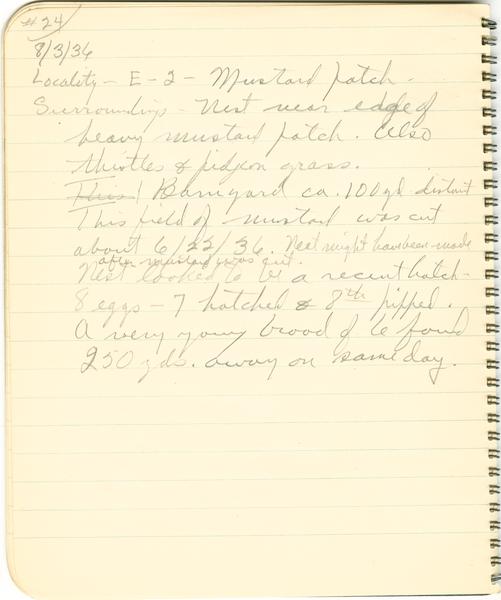 #24
8/3/36
Locality - E-2 - Mustard patch.
Surroundings - Nest near edge of
heavy mustard patch. Also
thistles & pidgeon grass.
This! Barnyard ca. 100 yd. distant
This field of mustard was cut
about 6/22/36. Nest might have been made
after mustard was cut.
Nest looked to be a recent hatch -
8 eggs - 7 hatched & 8th pipped.
A very young brood of 6 found
250 yds. away on same day.